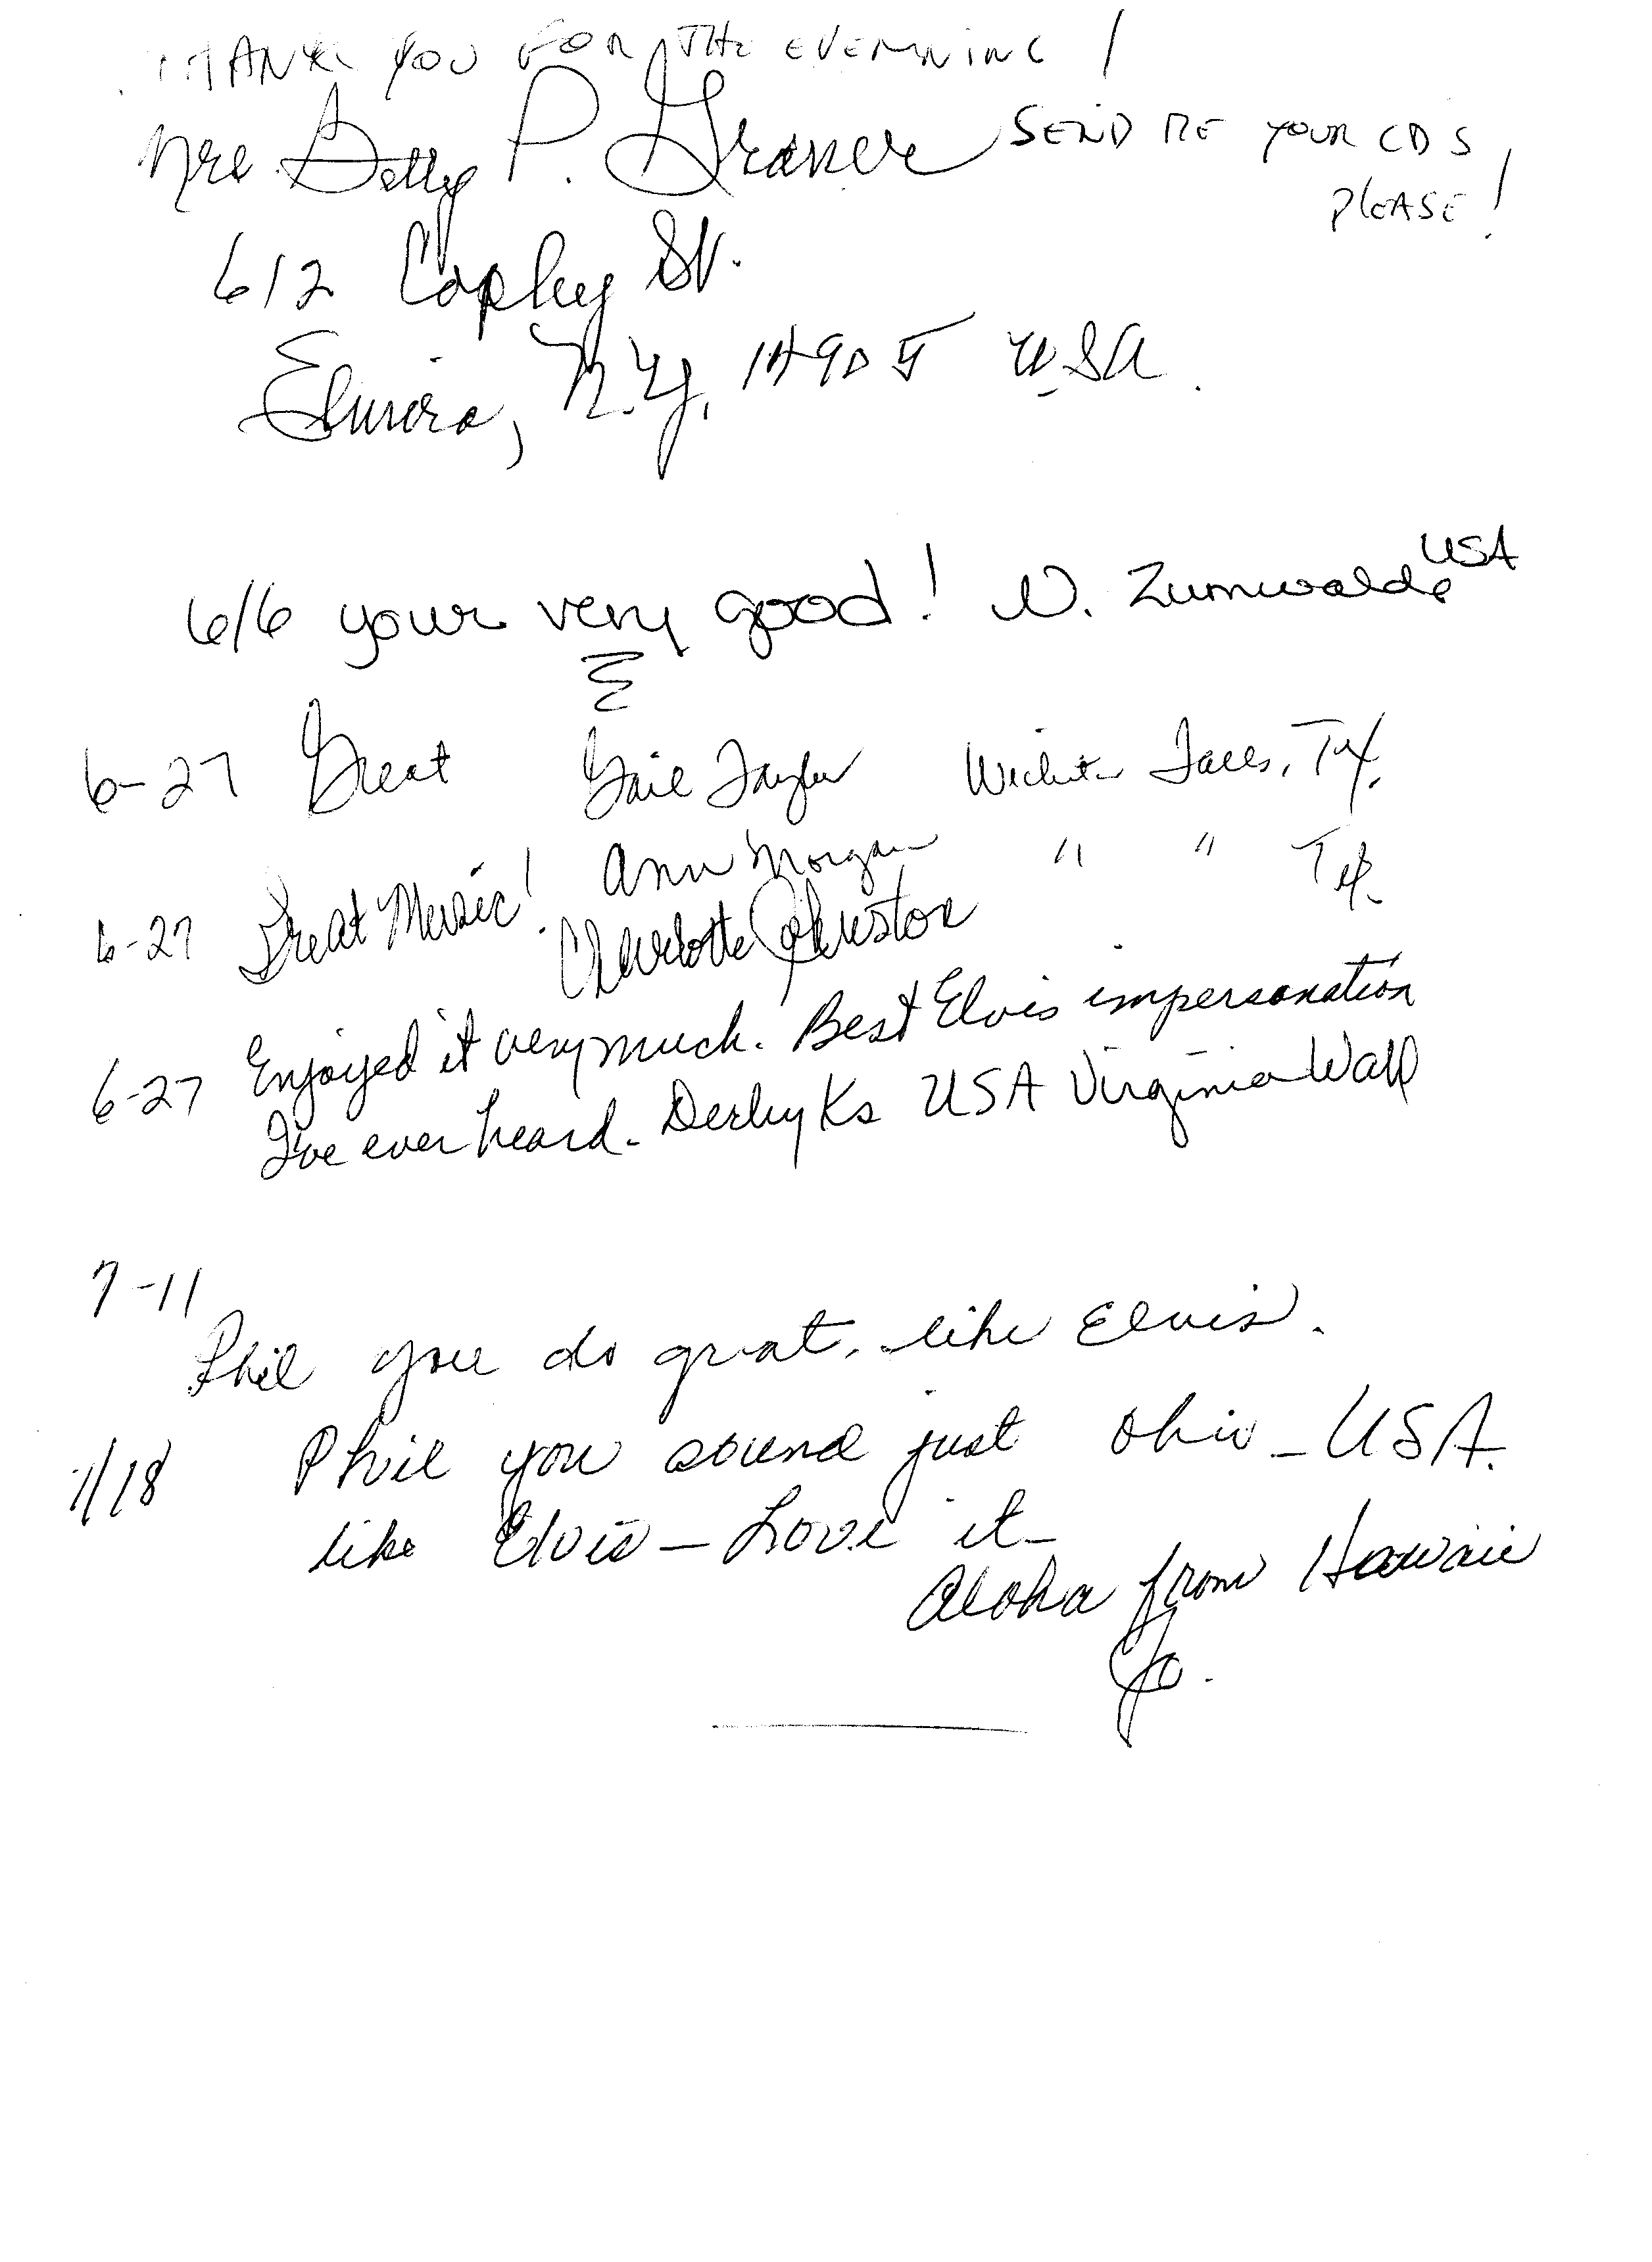 THANK YOU FOR THE EVENNING!
Mrs. Betty P. SEND ME YOUR CDS,
PLEASE!
612 Copley St.
Elmira, N.Y. 14905 USA.
6/6 your very good! N. Zumwalde USA
6-27 Great Gail Taylor Wichita Falls, TX.
Ann Morgan " " TX.
6-27 Great Music! Charlotte Johnston
6-27 Enjoyed it very much. Best Elvis impersonation
I've ever heard. Derby Ks USA Virginia Wall
7-11
Phil you do great, like Elvis.
7/18 Phil you sound just Ohio - USA.
like Elvis - Love it -
Aloha from Hawaii
Jo.